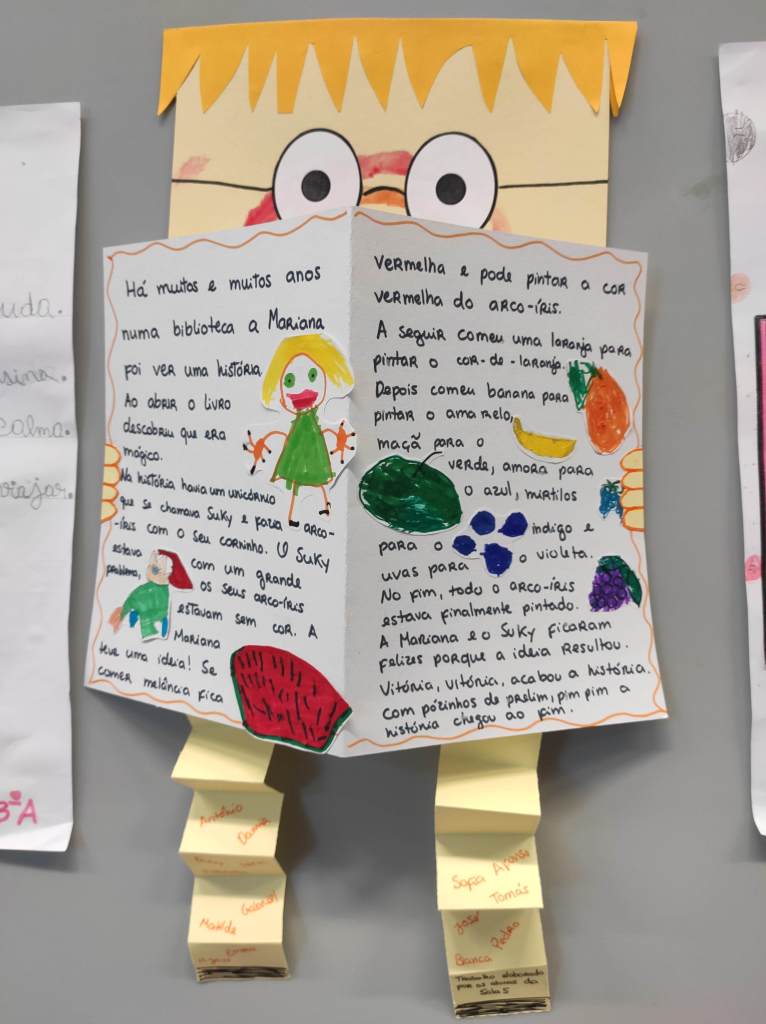 Há muitos e muitos anos
numa biblioteca a Mariana
foi ver uma história.
Ao abrir o livro
descobriu que era
mágico.
Na história havia um unicórnio
que se chamava Suky e fazia arco-
-íris com o seu corninho. O Suky
estava com um grande
problema, os seus arco-íris
estavam sem cor. A
Mariana
teve uma ideia! Se
comer melância fica
vermelha e pode pintar a cor
vermelha do arco-íris.
A seguir comeu uma laranja para
pintar o cor-de-laranja.
Depois comeu banana para
pintar o amarelo,
maçã para o
verde, amora para
o azul, mirtilos
para o indigo e
uvas para o violeta.
No fim, todo o arco-íris
estava finalmente pintado.
A Mariana e o Suky ficaram
felizes porque a ideia resultou.
Vitória, vitória, acabou a história.
com pózinhos de prslim, pim pim a
história chegou ao fim.
António
Gabriel
Matilde
Sofia Afonso
Tomás
José
Pedro
Bianca
Trabalho elaborado
por os alunos da
Sala 5
uda.
calma.
viajar.
3ºA